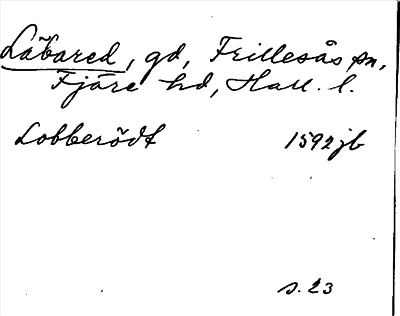 Låbared, gd, Frillesås sn,
Fjäre hd, Hall. l.
Lobberödt 1592 jb
s. 23